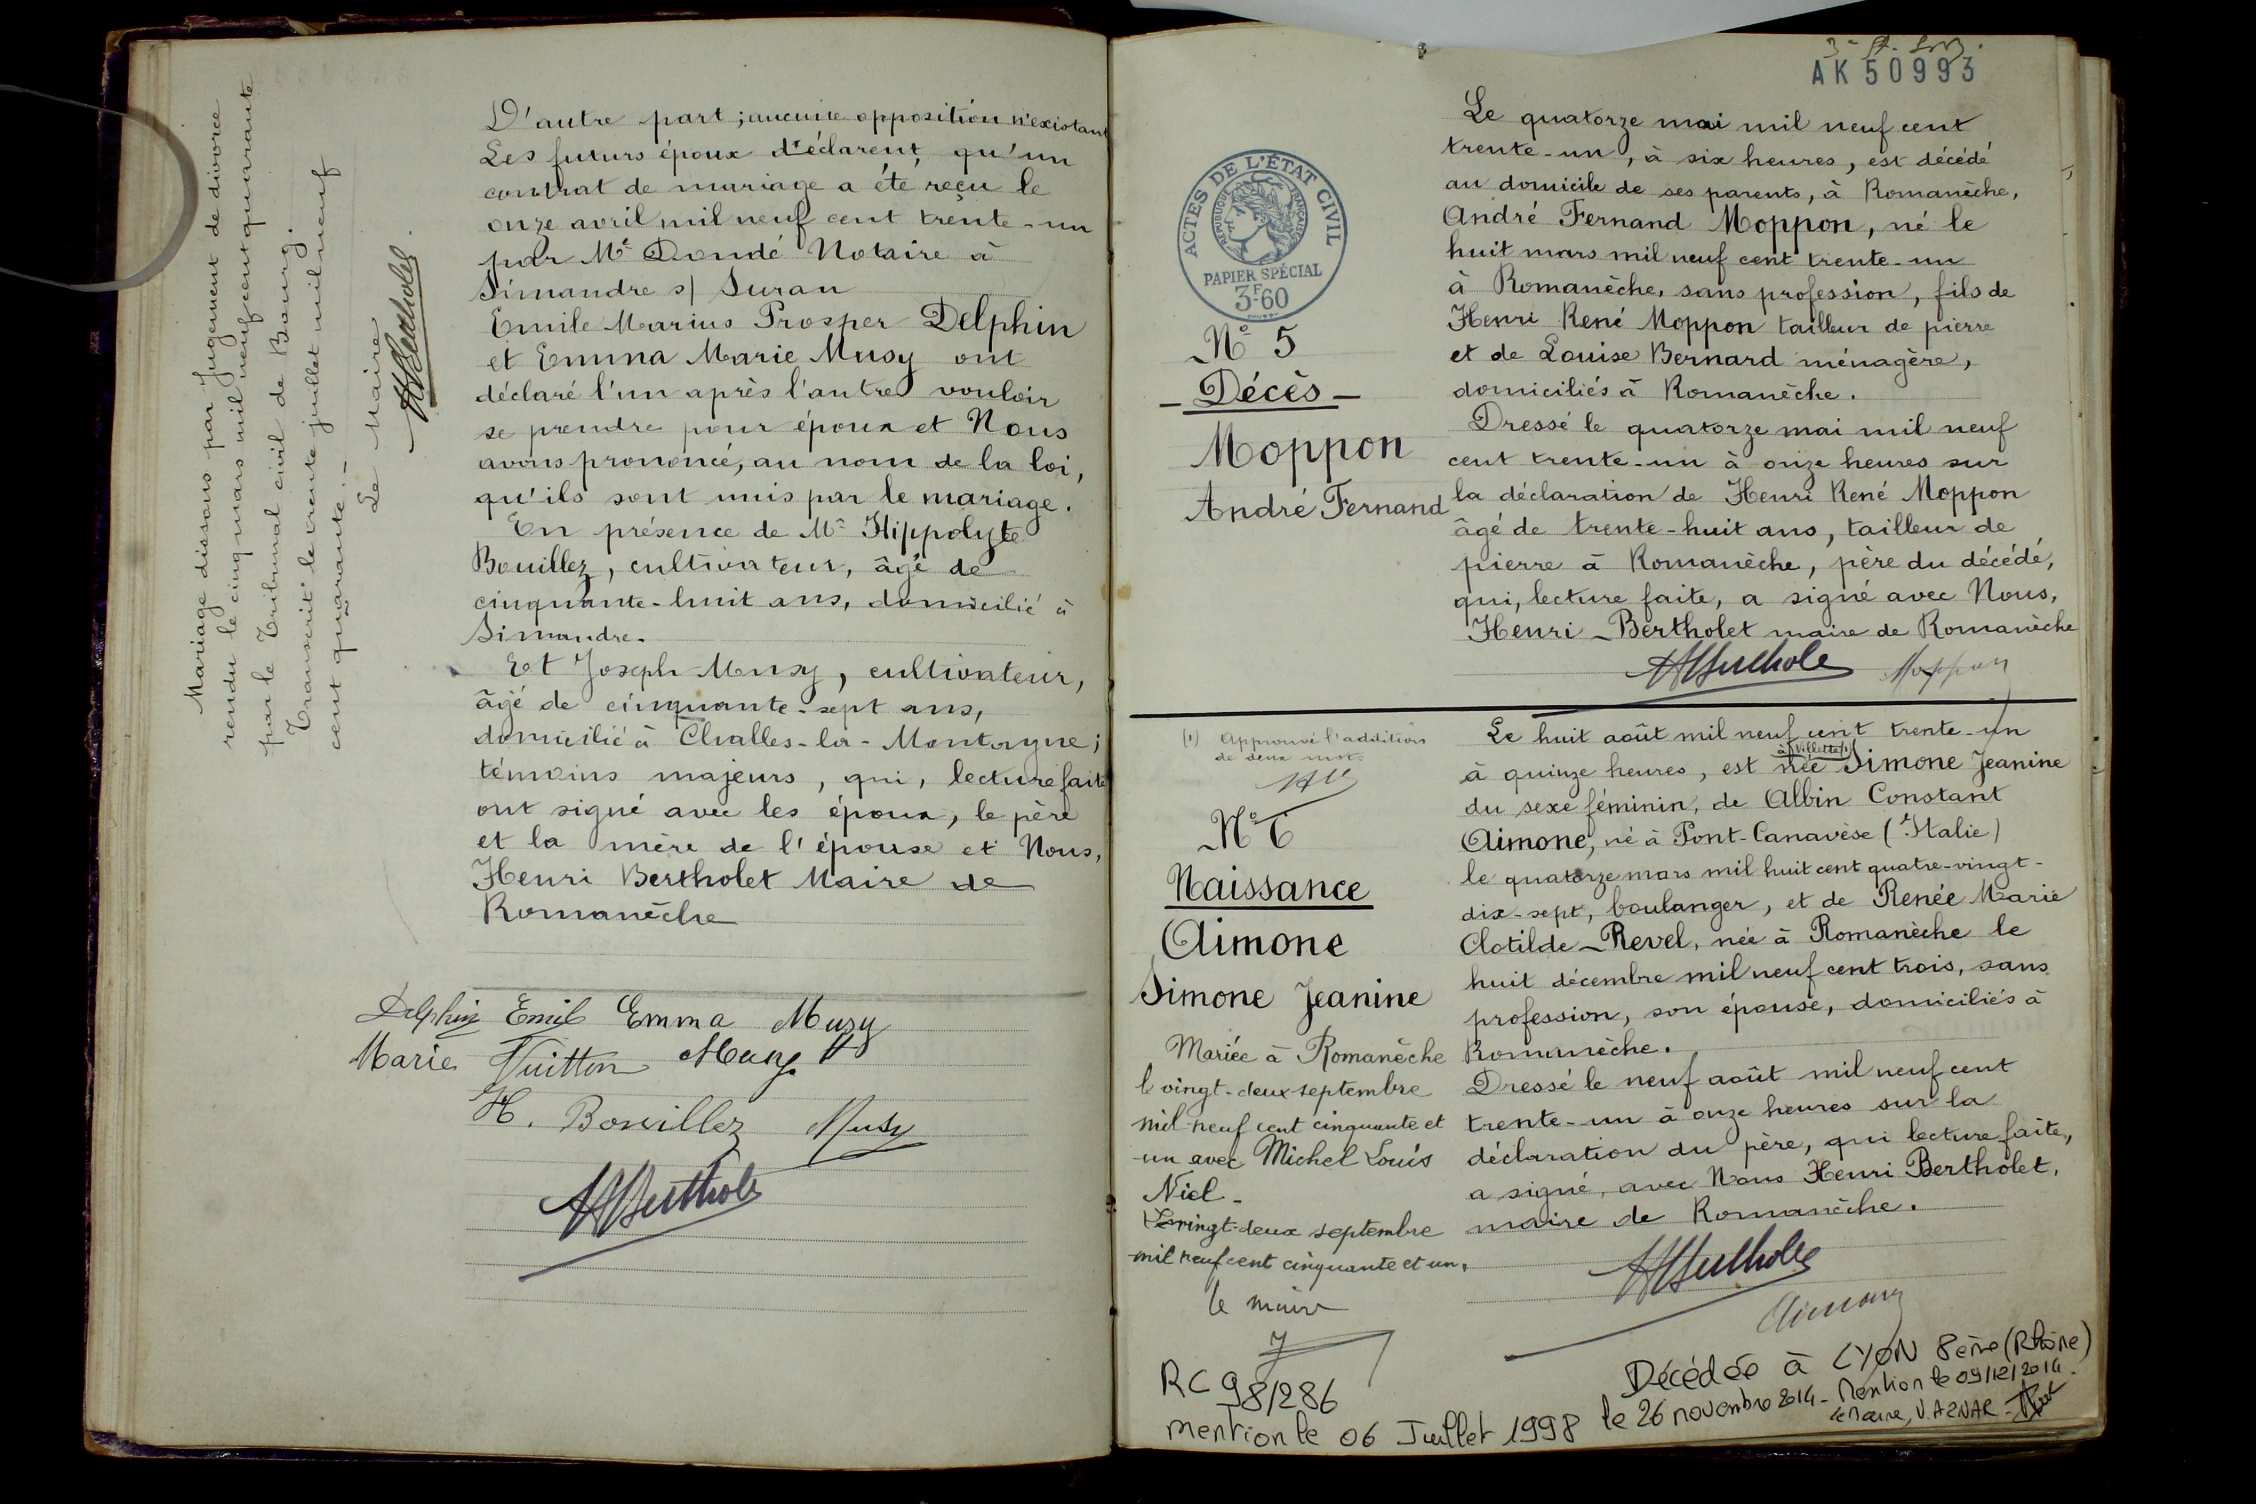 Mariage dissous par Jugement de divorce
rendu le cinq mars mil neuf cent quarante
par le Tribunal civil de Bourg.
Transcrit le trente juillet mil neuf
cent quarante.-
Le Maire
HBerthole
D'autre part ; aucune opposition n'existant
Les futurs époux déclarent, qu'un
contrat de mariage a été reçu le
onze avril mil neuf cent trente-un
par Me Dondé Notaire à
Simandre s/ Suran
Emile Marius Prosper Delphin
et Emma Marie Musy ont
déclaré l'un après l'autre vouloir
se prendre pour époux et Nous
avons prononcé, au nom de la loi,
qu'ils sont unis par le mariage.
En présence de Mr Hippolyte
Bouillez, cultivateur, âgé de
cinquante-huit ans, domicilié à
Simandre.
Et Joseph Musy, cultivateur,
âgé de cinquante-sept ans,
domicilié à Challes-la-Montagne ;
témoins majeurs, qui, lecture faite
ont signé avec les époux, le père
et la mère de l'épouse et Nous,
Henri Bertholet Maire de
Romanèche
Delphin Emil Emma Musy
Marie Vuitton Musy
H. Bouillez Musy
HBerthole
AK 50993
ACTES DE L'ÉTAT CIVIL
RÉPUBLIQUE FRANÇAISE
PAPIER SPÉCIAL
3F.60
No 5
- Décès -
Moppon
André Fernand
Le quatorze mai mil neuf cent
trente-un, à six heures, est décédé
au domicile de ses parents, à Romanèche,
André Fernand Moppon, né le
huit mars mil neuf cent trente-un
à Romanèche, sans profession, fils de
Henri René Moppon tailleur de pierre
et de Louise Bernard ménagère,
domiciliés à Romanèche.
Dressé le quatorze mai mil neuf
cent trente-un à onze heures sur
la déclaration de Henri René Moppon
âgé de trente-huit ans, tailleur de
pierre à Romanèche, père du décédé,
qui, lecture faite, a signé avec Nous,
Henri Bertholet maire de Romanèche
HBerthole Moppon
(1) Approuvé l'addition
de deux mots
HB
No 6
Naissance
Aimone
Simone Jeanine
Mariée à Romanèche
le vingt-deux septembre
mil neuf cent cinquante et
un avec Michel Louis
Niel -
Le vingt-deux septembre
mil neuf cent cinquante et un.
le maire
RC 98/286
mention le 06 Juillet 1998
Le huit août mil neuf cent trente-un
à Villette (1)
à quinze heures, est née Simone Jeanine
du sexe féminin, de Albin Constant
Aimone, né à Pont-Canavèse (Italie)
le quatorze mars mil huit cent quatre-vingt-
dix-sept, boulanger, et de Renée Marie
Clotilde Revel, née à Romanèche le
huit décembre mil neuf cent trois, sans
profession, son épouse, domiciliés à
Romanèche.
Dressé le neuf août mil neuf cent
trente-un à onze heures sur la
déclaration du père, qui lecture faite,
a signé, avec Nous Henri Bertholet,
maire de Romanèche.
HBerthole
Aimone
Décédée à LYON 8ème (Rhône)
le 26 novembre 2014 - Mention le 09/12/2014.
le Maire, V. AZNAR